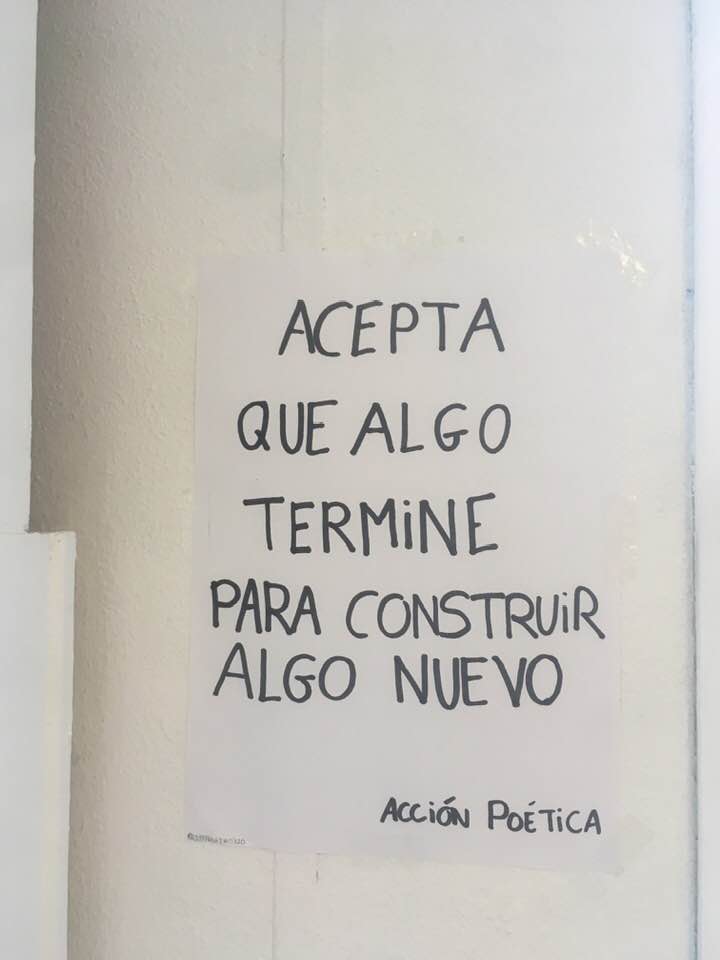 ACEPTA
QUE ALGO
TERMiNE
PARA CONSTRUiR
ALGO NUEVO
ACCiÓN POÉTiCA